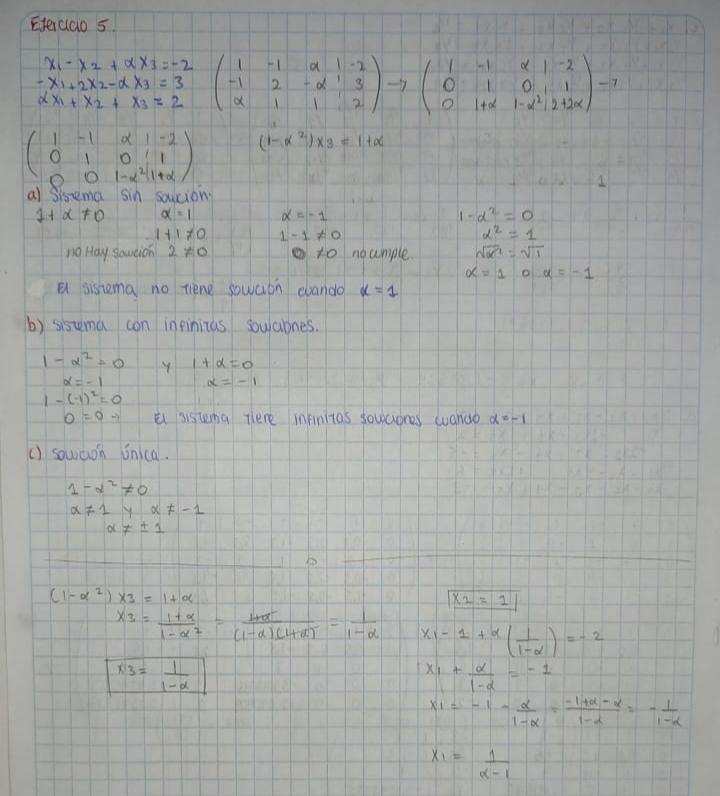 Ejercicio 5.
x1 - x2 + αx3 = -2
-x1 + 2x2 - αx3 = 3
αx1 + x2 + x3 = 2
( 1 -1 α | -2
-1 2 -α | 3
α 1 1 | 2 ) →
( 1 -1 α | -2
0 1 0 | 1
0 1+α 1-α² | 2+2α ) →
( 1 -1 α | -2
0 1 0 | 1
0 0 1-α² | 1+α )
(1-α²)x3 = 1+α
a) Sistema sin solución.
1+α ≠ 0
α = 1
1+1 ≠ 0
no Hay solución 2 ≠ 0
α = -1
1-1 ≠ 0
0 ≠ 0 no cumple.
1-α² = 0
α² = 1
√α² = √1
α = 1 o α = -1
El sistema no tiene solución cuando α = 1
b) sistema con infinitas soluciones.
1-α² = 0 y 1+α = 0
α = -1 α = -1
1-(-1)² = 0
0 = 0 → El sistema tiene infinitas soluciones cuando α = -1
c) solución única.
1-α² ≠ 0
α ≠ 1 y α ≠ -1
α ≠ ± 1
(1-α²) x3 = 1+α
x3 = 1+α / 1-α² = 1+α / (1-α)(1+α) = 1 / 1-α
x3 = 1 / 1-α
x2 = 1
x1 - 1 + α (1 / 1-α) = -2
x1 + α / 1-α = -1
x1 = -1 - α / 1-α = -1+α-α / 1-α = - 1 / 1-α
x1 = 1 / α-1